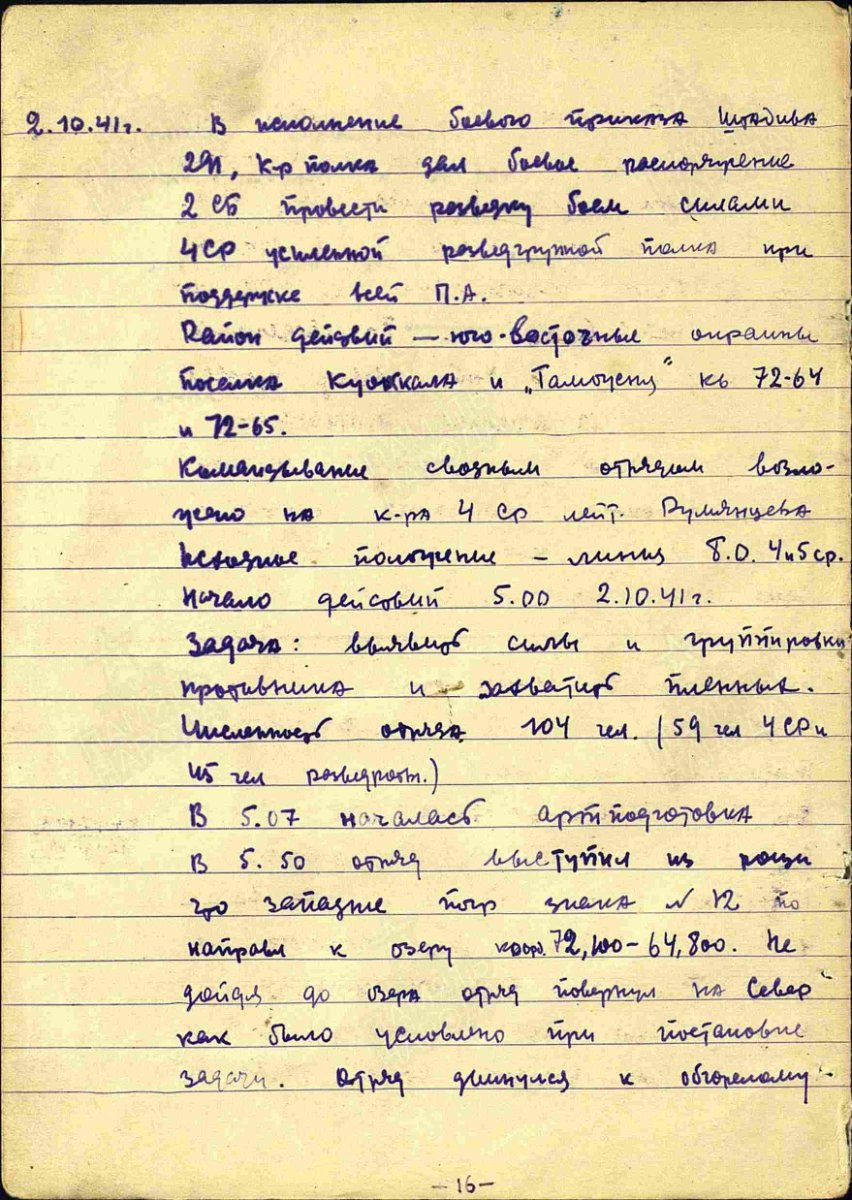 2.10.41г. В исполнение боевого приказа Штадива
291, К-р полка дал боевое распоряжение
2 СБ провести разведку боем силами
4 СР усиленной разведгруппой полка при
поддержке всей П.А.
Район действий — юго-восточные окраины
поселка Куоккала и „Таможня" кв 72-64
и 72-65.
Командывание сводным отрядом возло-
жено на к-ра 4 Ср лейт. Румянцева
Исходное положение – линия Б.О. 4и5ср.
Начало действий 5.00 2.10.41г.
Задача: выявить силы и группировку
противника и захватить пленных.
Численность отряда 104 чел. (59 чел 4СРи
45 чел разведроты.)
В 5.07 началась артподготовка
В 5.50 отряд выступил из рощи
что западне погр знака № 12 по
направл к озеру коорд. 72,100–64,800. Не
дойдя до озера отряд повернул на Север
как было условлено при постановке
задачи. Отряд двинулся к обгорелому
–16–